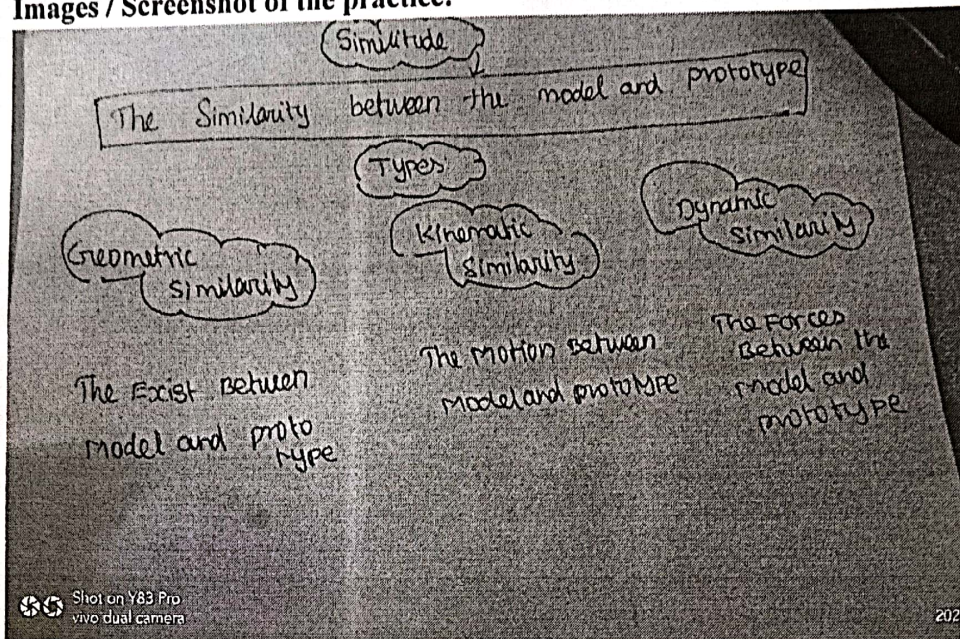 Images / Screenshot of the practice:
Similitude
The Similarity between the model and prototype
Types
Geometric
similarity
Kinematic
Similarity
Dynamic
similarity
The Exist Between
Model and proto
type
The Motion Between
Model and prototype
The Forces
Between the
model and
prototype
Shot on Y83 Pro
vivo dual camera
202